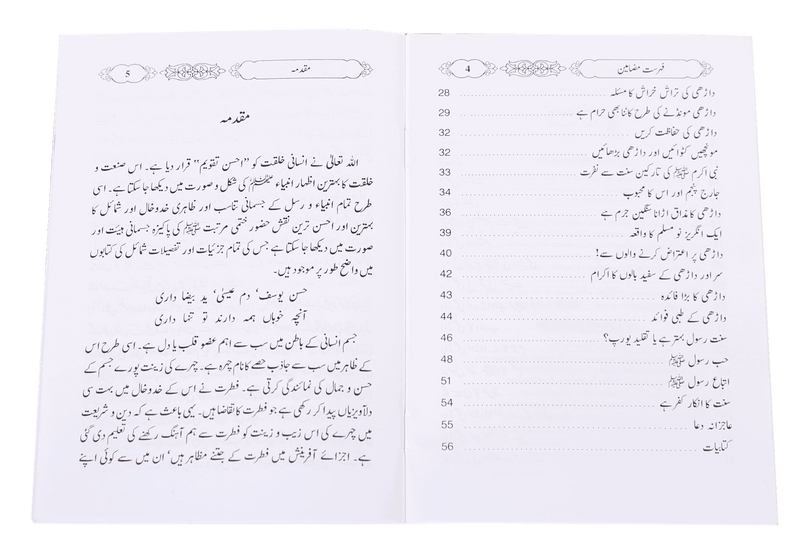 4
فہرست مضامین
داڑھی کی تراش خراش کا مسئلہ 28
داڑھی مونڈنے کی طرح کاٹنا بھی حرام ہے 29
داڑھی کی حفاظت کریں 32
مونچھیں کٹوائیں اور داڑھی بڑھائیں 32
نبی اکرم ﷺ کی تارکین سنت سے نفرت 33
جارج پنجم اور اس کا محبوب 34
داڑھی کا مذاق اڑانا سنگین جرم ہے 36
ایک انگریز نو مسلم کا واقعہ 39
داڑھی پر اعتراض کرنے والوں سے! 40
سر اور داڑھی کے سفید بالوں کا اکرام 42
داڑھی کا بڑا فائدہ 43
داڑھی کے طبی فوائد 44
سنت رسول بہتر ہے یا تقلید یورپ؟ 46
حب رسول ﷺ 48
اتباع رسول ﷺ 51
سنت کا انکار کفر ہے 54
عاجزانہ دعا 55
کتابیات 56
5
مقدمہ
مقدمہ
اللہ تعالیٰ نے انسانی خلقت کو ”احسن تقویم“ قرار دیا ہے۔ اس صنعت و
خلقت کا بہترین اظہار انبیاء کی شکل و صورت میں دیکھا جا سکتا ہے۔ اسی
طرح تمام انبیاء و رسل کے جسمانی تناسب اور ظاہری خدوخال اور شمائل کا
بہترین اور احسن ترین نقش حضور ختمی مرتبت ﷺ کی پاکیزہ جسمانی ہیئت اور
صورت میں دیکھا جا سکتا ہے جس کی تمام جزئیات اور تفصیلات شمائل کی کتابوں
میں واضح طور پر موجود ہیں۔
حسن یوسف‘ دم عیسیٰ‘ ید بیضا داری
آنچہ خوباں ہمہ دارند تو تنہا داری
جسم انسانی کے باطن میں سب سے اہم عضو قلب یا دل ہے۔ اسی طرح اس
کے ظاہر میں سب سے جاذب حصے کا نام چہرہ ہے۔ چہرے کی زینت پورے جسم کے
حسن و جمال کی نمائندگی کرتی ہے۔ فطرت نے اس کے خدوخال میں بہت سی
دلآویزیاں پیدا کر رکھی ہے جو فطرت کا تقاضا ہیں۔ یہی باعث ہے کہ دین و شریعت
میں چہرے کی اس زیب و زینت کو فطرت سے ہم آہنگ رکھنے کی تعلیم دی گئی
ہے۔ اجزائے آفرینش میں فطرت کے جتنے مظاہر ہیں‘ ان میں سے کوئی اپنے